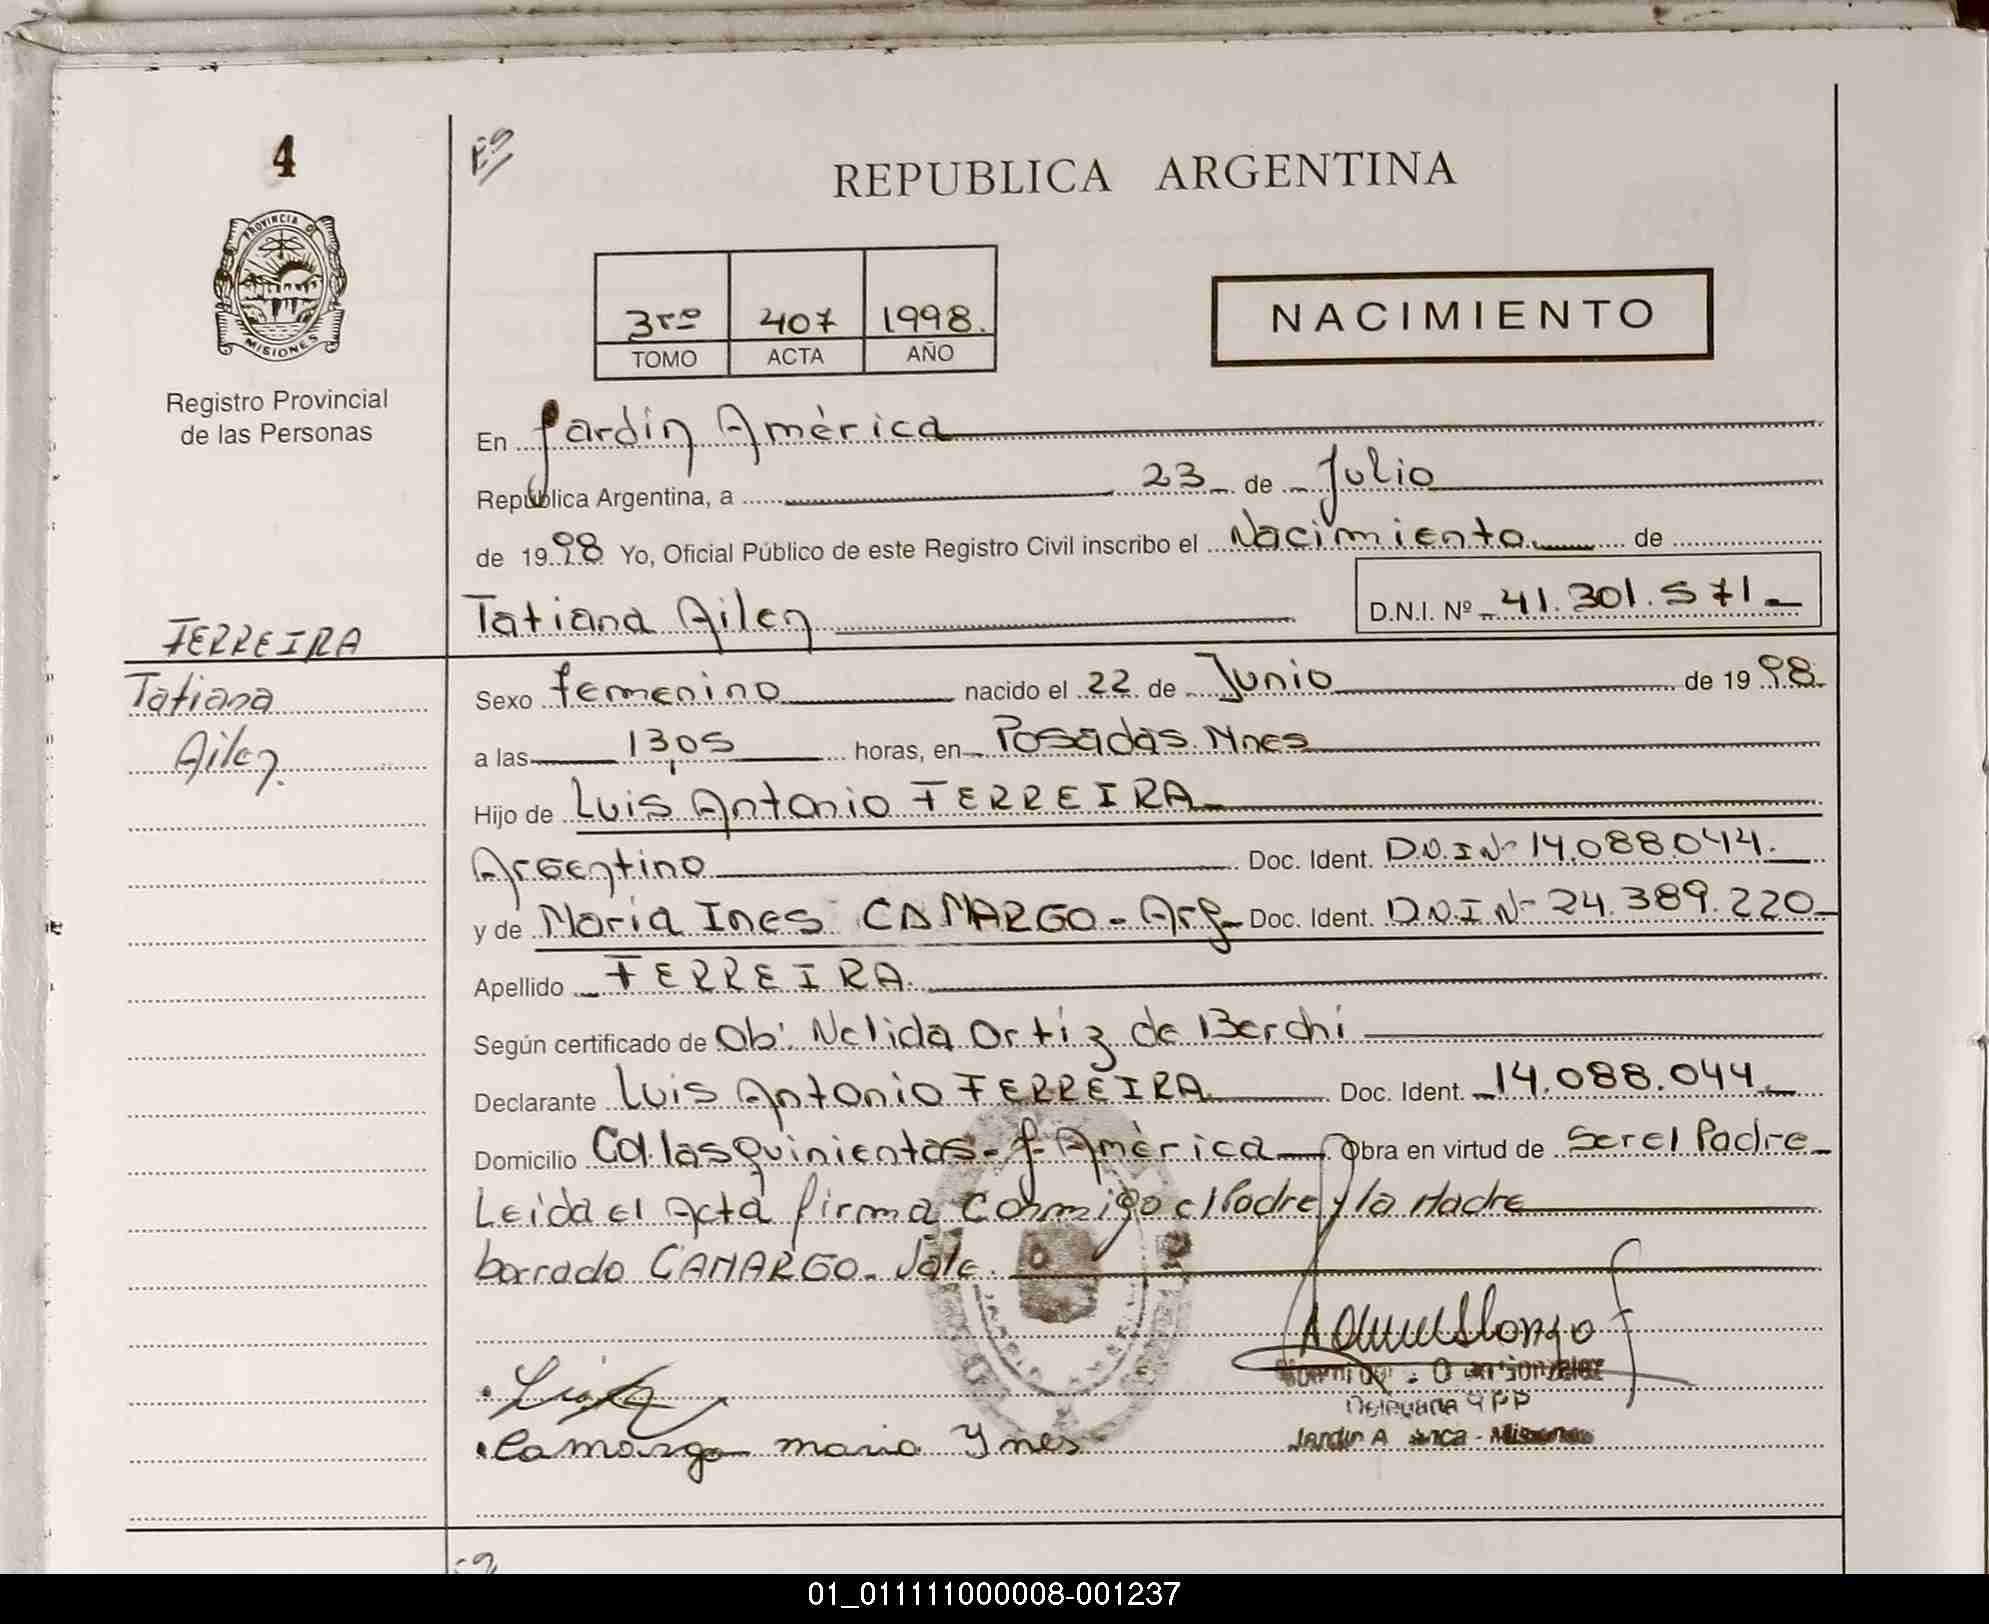 4
REPUBLICA ARGENTINA
PROVINCIA DE
MISIONES
Registro Provincial
de las Personas
3ro 407 1998.
TOMO ACTA AÑO
NACIMIENTO
En Jardín América
República Argentina, a 23 de Julio
de 1998 Yo, Oficial Público de este Registro Civil inscribo el Nacimiento de
Tatiana Ailen D.N.I. Nº 41.301.571
FERREIRA
Tatiana
Ailen.
Sexo femenino nacido el 22 de Junio de 1998.
a las 13,05 horas, en Posadas Mnes
Hijo de Luis Antonio FERREIRA
Argentino Doc. Ident. D.N.I Nº 14.088.044.
y de Maria Ines CAMARGO - Arg- Doc. Ident. D.N.I Nº 24.389.220
Apellido FERREIRA.
Según certificado de Ob: Nelida Ortiz de Berchi
Declarante Luis Antonio FERREIRA Doc. Ident. 14.088.044
Domicilio Col. las quinientas - J. América Obra en virtud de Ser el Padre
Leída el Acta firma conmigo el Padre y la Madre
borrado CAMARGO - Vale.
Camargo maria Ynes
Jardin A - Misiones
01_011111000008-001237